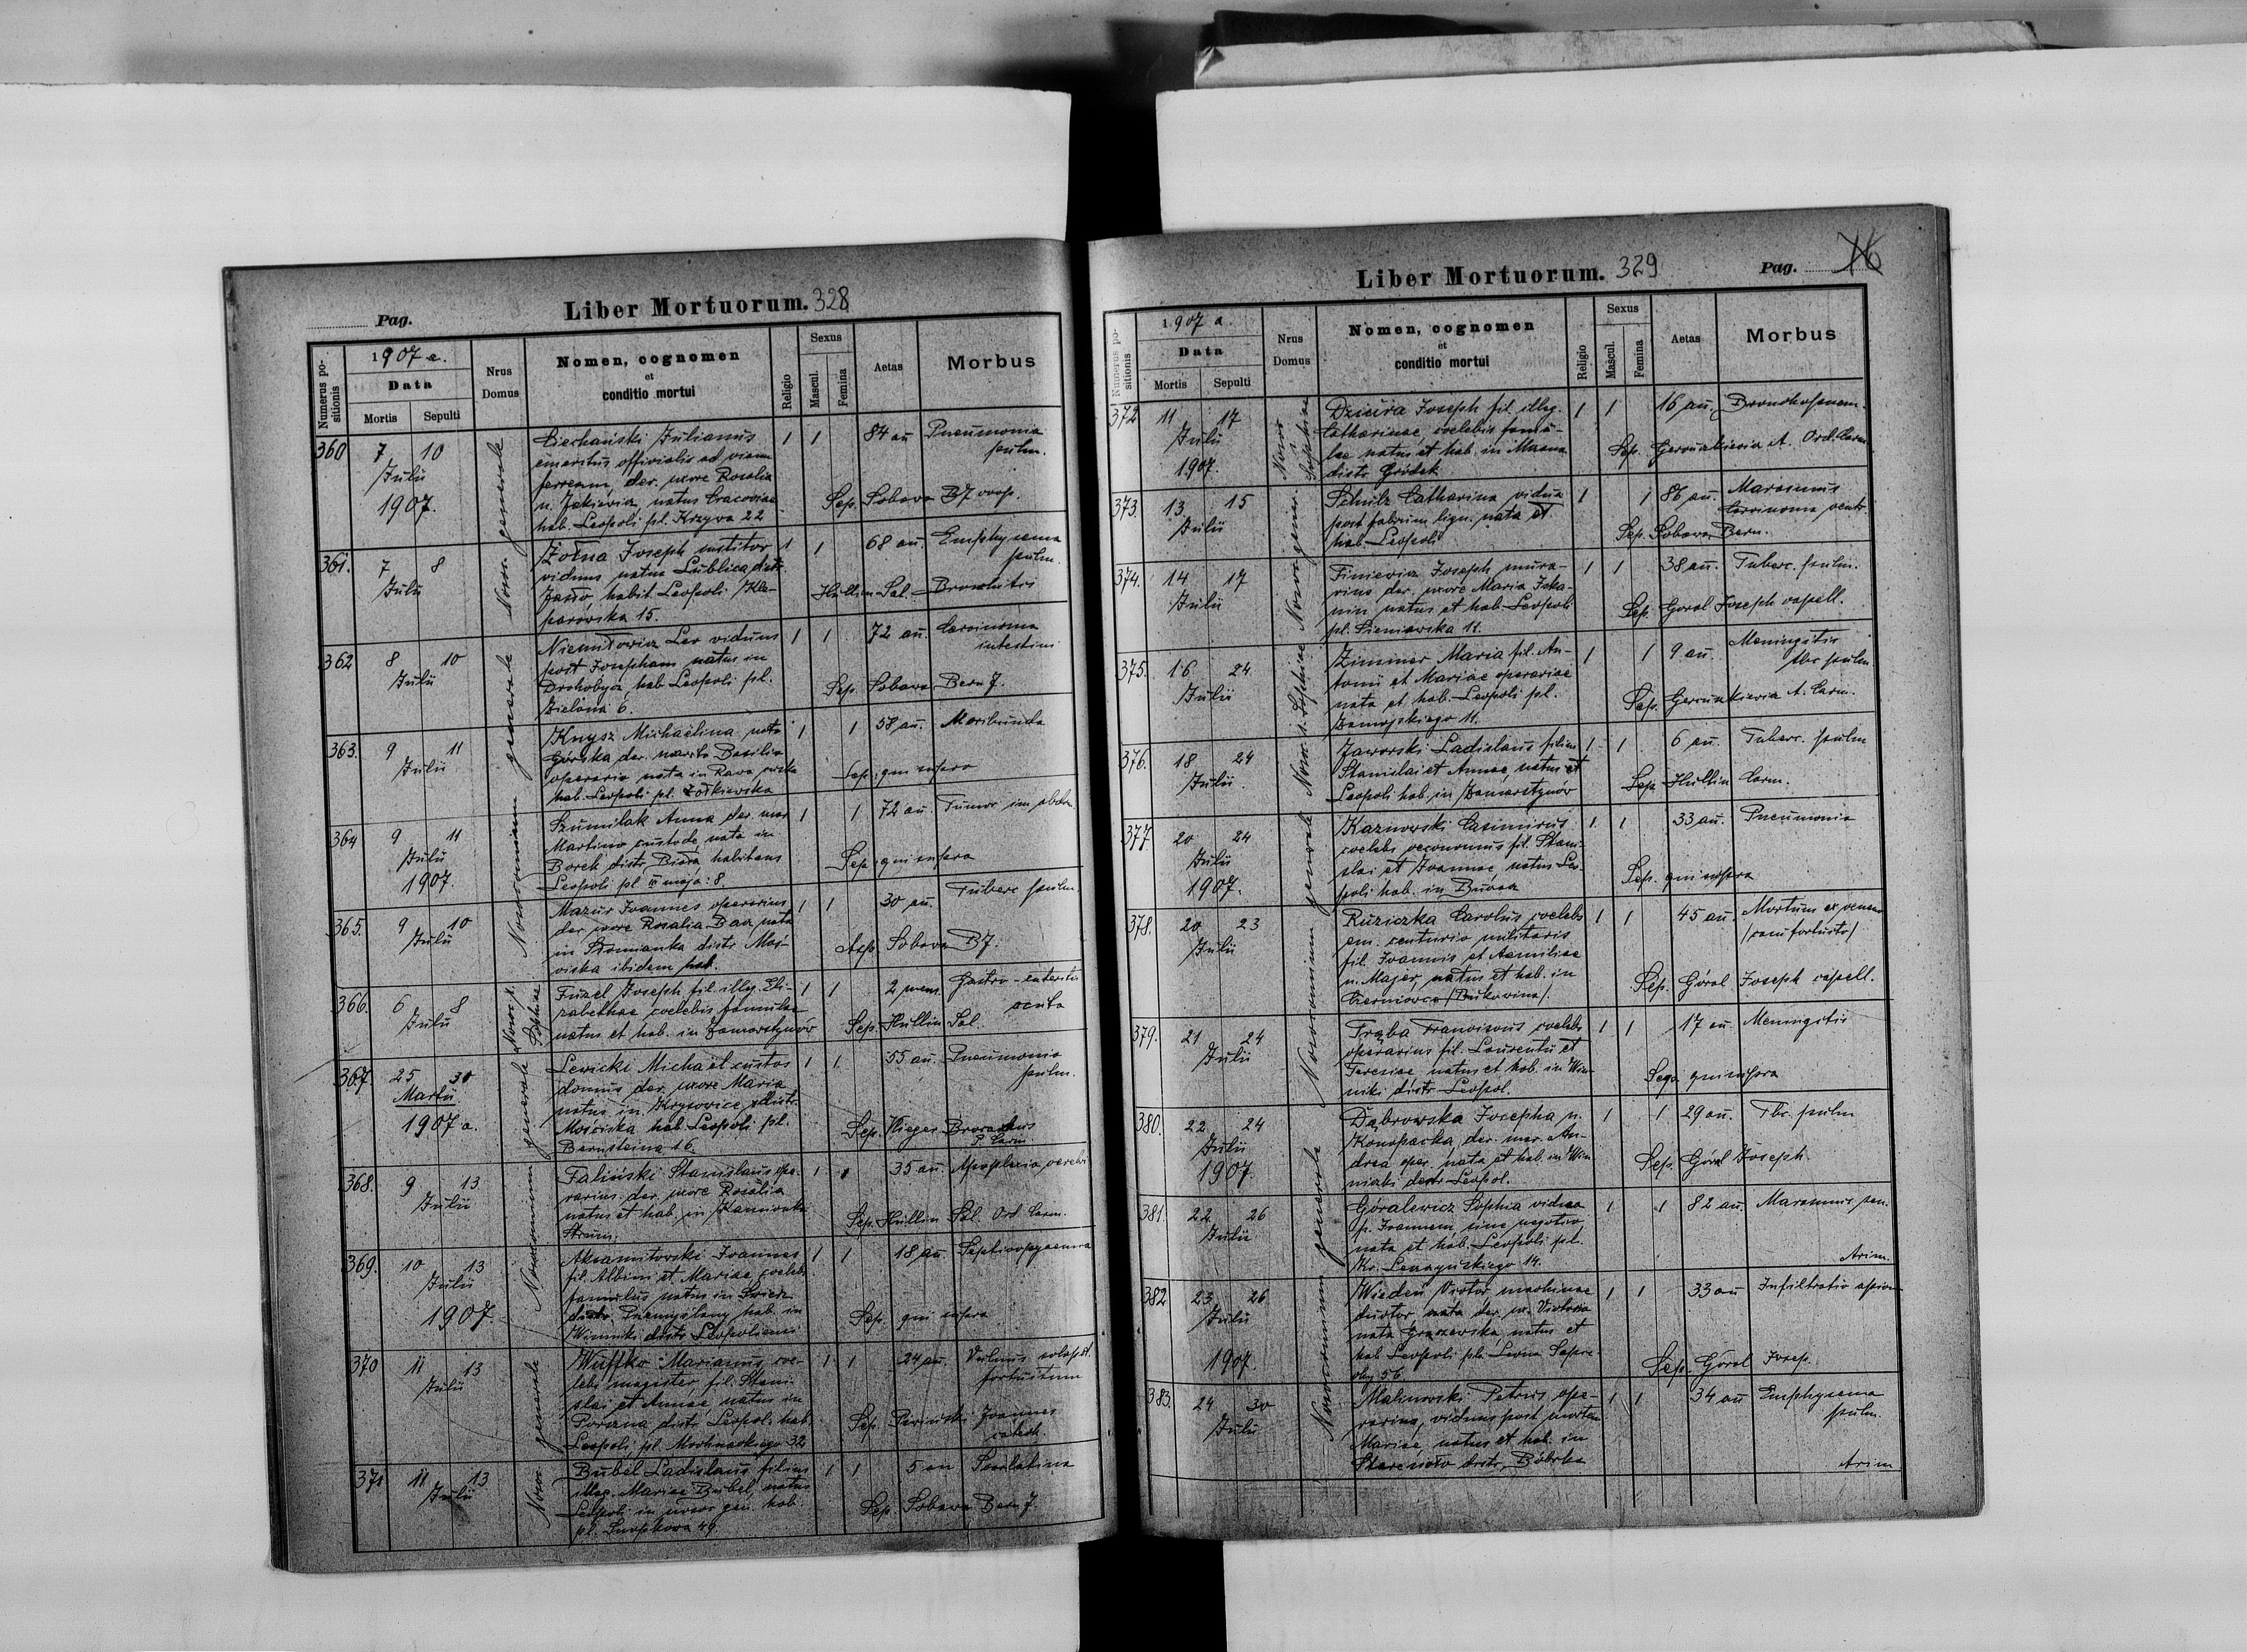 Pag.
Liber Mortuorum. 328
Numerus positionis
1907 a.
Data
Mortis Sepulti
Nrus Domus
Nomen, cognomen
et
conditio mortui
Religio
Sexus
Mascul. Femina
Aetas
Morbus
360 7 10 Ciechański Julianus 1 1 84 an Pneumonia
Julii emeritus officialis ad viam pulm.
1907. ferream, der. uxore Rosalia
n. Jakiewicz natus Cracoviae Sep. Sobawa
hab. Leopoli pl. Krzywa 22
Nosocomium generale
361. 7 8 Żołna Joseph institor 1 1 68 an. Emphysema
Julii viduus natus Lublica distr. pulm.
Jasło, habit. Leopoli Kle- Hüllin Sal.
parowska 15.
362 8 10 Niemiłowicz Leo viduus 1 1 72 an. Carcinoma
Julii post Josepham natus in intestini
Drohobycz hab. Leopoli pl. Sep. Sobawa Bern J.
Zielona 6.
363. 9 11 Knysz Michaëlina nata 1 1 58 an. Moribunda
Julii Górska der. marito Basilio
operario nata in Rawa ruska Sep. qui supra
hab. Leopoli pl. Żółkiewska
364 9 11 Szumilak Anna der. mar 1 1 72 an. Tumor in abdom.
Julii Martino custode nata in
1907. Borek distr. habitans Sep. qui supra
Leopoli pl. maja: 8.
365. 9 10 Mazur Joannes operarius 1 1 30 an. Tuberc pulm.
Julii der. uxore Rosalia nata
in Słomianka distr. Moś- Sep. Sobawa BJ.
ciska ibidem hab.
366. 6 8 Fuzel Joseph fil. illeg. Eli- 1 1 2 mens. Gastro-enteritis
Julii zabethae coelebis famulae acuta
natus et hab. in Zamarstynów Sep. Hüllin Sal.
Nosoc. s. Sophiae
367. 25 30 Lewicki Michaël custos 1 1 55 an. Pneumonia
Martii domus der. uxore Maria pulm.
1907 a. natus in Krysowice distr.
Mościska hab. Leopoli pl. Sep.
Bernsteina 16. P. Carm
368. 9 13 Faliński Stanislaus ope- 1 1 35 an. Apoplexia cerebri
Julii rarius der. uxore Rosalia
natus et hab. in Kamionka Sep. Hüllin Sal. Ord Carm.
Strum.
369. 10 13 Aksamitowski Joannes 1 1 18 an. Septicopyaemia
Julii fil. Albini et Mariae coelebs
1907. famulus natus in Świerz
distr. Przemyślany hab. in Sep. qui supra
Winniki distr. Leopoliensi
370 11 13 Wuffko Marianus, coe- 1 1 24 an. Vulnus sclopet.
Julii lebs magister, fil. Stani- fortuitum
slai et Annae, natus in
distr. Leopol. hab. Sep. Joannes
Leopoli pl. Mochnackiego 32 catech.
371 11 13 Bubel Ladislaus filius 1 1 5 an Scarlatina
Julii illeg. Mariae Bubel, natus
Leopoli in nosoc gen. hab. Sep. Sobawa Bern J.
pl. Snopkowa 49.
Liber Mortuorum. 329
Pag.
Numerus positionis
1907 a.
Data
Mortis Sepulti
Nrus Domus
Nomen, cognomen
et
conditio mortui
Religio
Sexus
Mascul. Femina
Aetas
Morbus
372 11 17 Dziura Joseph fil. illeg. 1 1 16 an. Bronchopneum.
Julii Catharinae, coelebis famu-
1907. lae natus et hab. in Mszana Sep. A. Ord. Carm.
distr. Gródek
Nosoc s Sophiae
373 13 15 Catharina vidua 1 1 86 an. Marasmus
Julii post fabrum lign. nata et Carcinoma ventr.
hab. Leopoli Sep. Sobawa Bern.
374. 14 17 Finiewicz Joseph mura- 1 1 38 an. Tuberc. pulm.
Julii rius der. uxore Maria
natus et hab. Leopoli Sep. Goral Joseph capell.
pl. Sieniawska 11.
375. 16 24 Zimmer Maria fil. An- 1 1 9 an. Meningitis
Julii tonii et Mariae operariae tbc pulm
nata et hab. Leopoli pl. Sep. A. Carm.
Zamojskiego 11.
Nosoc. s. Sophiae
376. 18 24 Jaworski Ladislaus filius 1 1 6 an. Tuberc. pulm
Julii Stanislai et Annae, natus et
Leopoli hab. in Zamarstynów Sep. Hüllin Carm.
377 20 24 Kaznowski Casimirus 1 1 33 an. Pneumonia
Julii coelebs oeconomus fil. Stani-
1907. slai et Joannae, natus Leo-
poli hab. in Sep. qui supra
378. 20 23 Ruziczka Carolus coelebs 1 1 45 an.
Julii em. centurio militaris /casu fortuito/
fil. Joannis et Aemiliae
n. Majer, natus et hab. in Sep. Góral Joseph capell.
Czerniowce /Bukowina/.
Nosocomium generale
379. 21 24 Trąba Franciscus coelebs 1 1 17 an. Meningitis
Julii operarius fil. Laurentii et
Teresiae natus et hab. in Win- Sep. qui supra
niki distr. Leopol.
380. 22 24 Dąbrowska Josepha n. 1 1 29 an. Tbc. pulm
Julii Konopacka, der. mar. An-
1907. drea oper. nata et hab. in Win Sep. Góral Joseph
niaki distr. Leopol.
381. 22 26 Góralewicz Sophia vidua 1 1 82 an. Marasmus sen.
Julii p. Joannem sine negotio
nata et hab. Leopoli pl. Arim.
14.
382 23 26 Wiedeń Victor machinae 1 1 33 an Infiltratio
Julii ductor, der. ux. Victoria
1907. nata Graczewska, natus et
hab. Leopoli pl. Leona Sapie- Sep. Góral Josep.
hy 56
383. 24 30 Malinowski Petrus ope- 1 1 34 an Emphysema
Julii rarius, viduus post mortem pulm.
Mariae, natus et hab. in
distr. Bóbrka Arim
Nosocomium generale